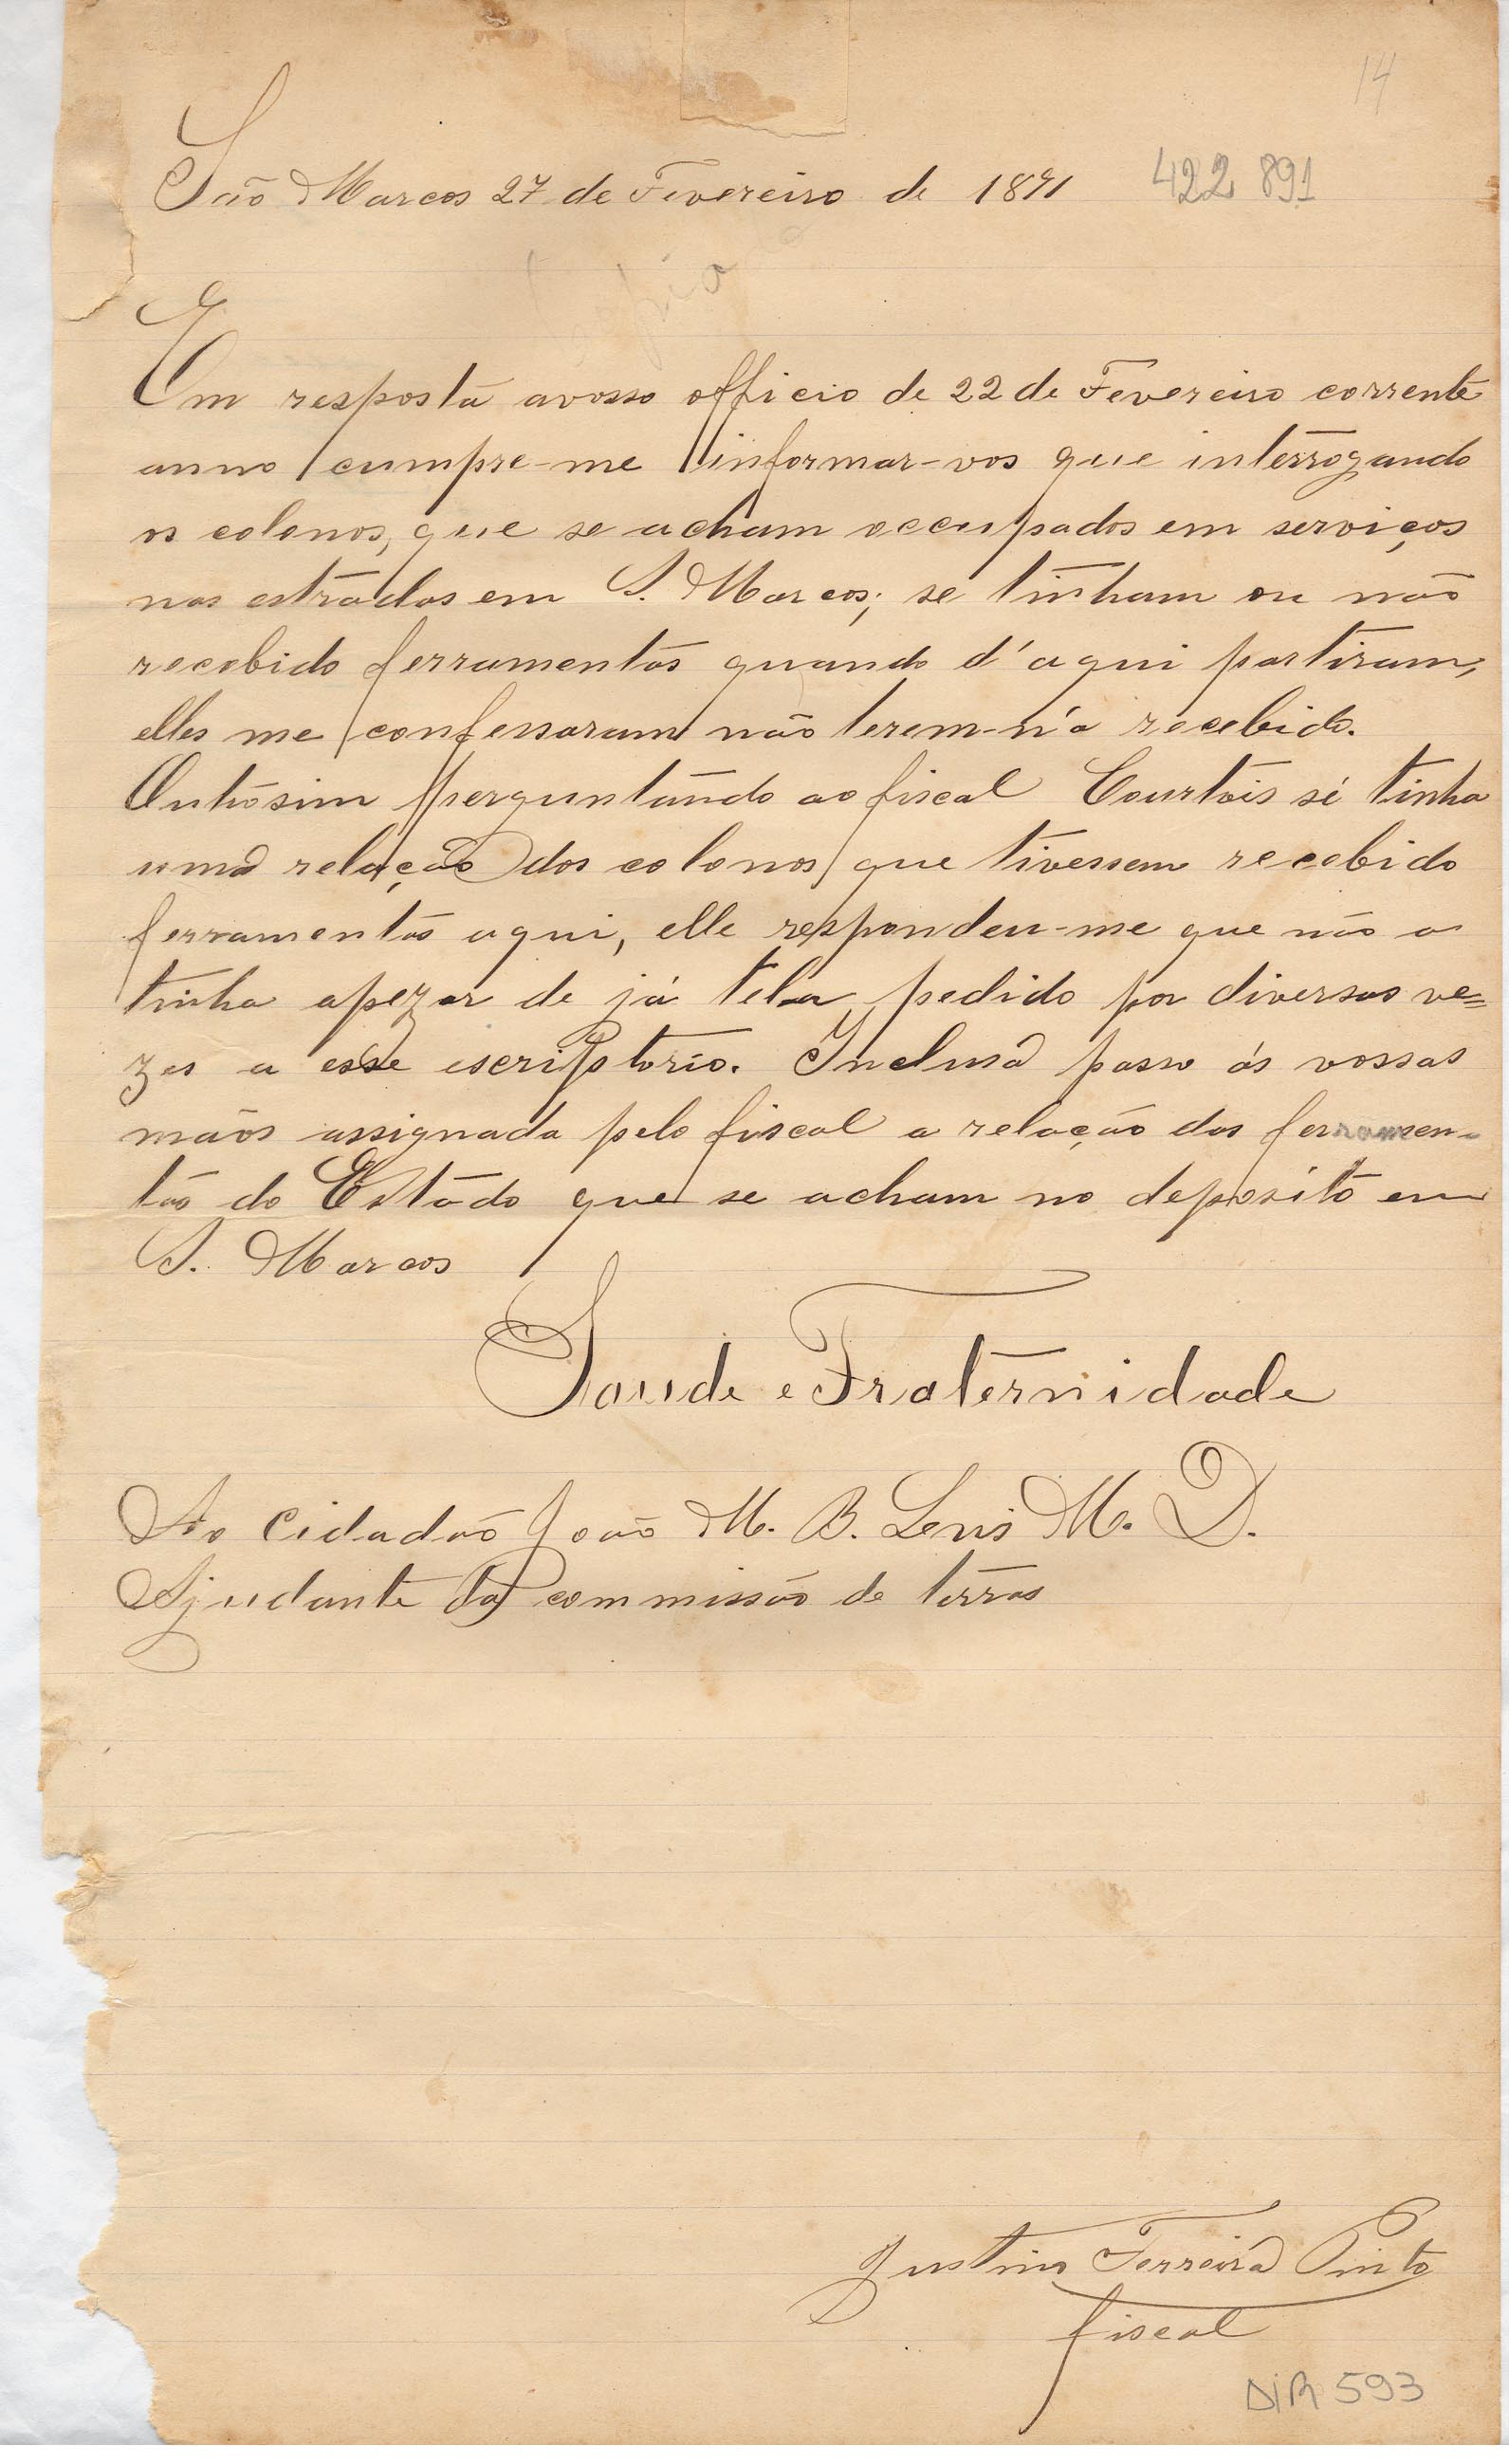 14
São Marcos 27 de Fevereiro de 1891 422 891
Em resposta avosso officio de 22 de Fevereiro corrente
anno cumpre-me informar-vos que interrogando
os colonos, que se acham occupados em serviços
nas estradas em S. Marcos; se tinham ou não
recebido ferramentas quando d'aqui partiram,
elles me confessaram não terem-n'a recebido.
Outrosim perguntando ao fiscal Courtois si tinha
uma relação dos colonos que tivessem recebido
ferramentas aqui, elle respondeu-me que não a
tinha apezar de já tel-a pedido por diversas ve=
zes a esse escriptorio. Inclusa passo ás vossas
mãos assignada pelo fiscal a relação das ferramen-
tas do Estado que se acham no deposito em
S. Marcos
Saude e Fraternidade
Ao Cidadão João M. B. Lenis M. D.
Ajudante da commissão de terras
Justino Ferreira Pinto
fiscal
DIR 593